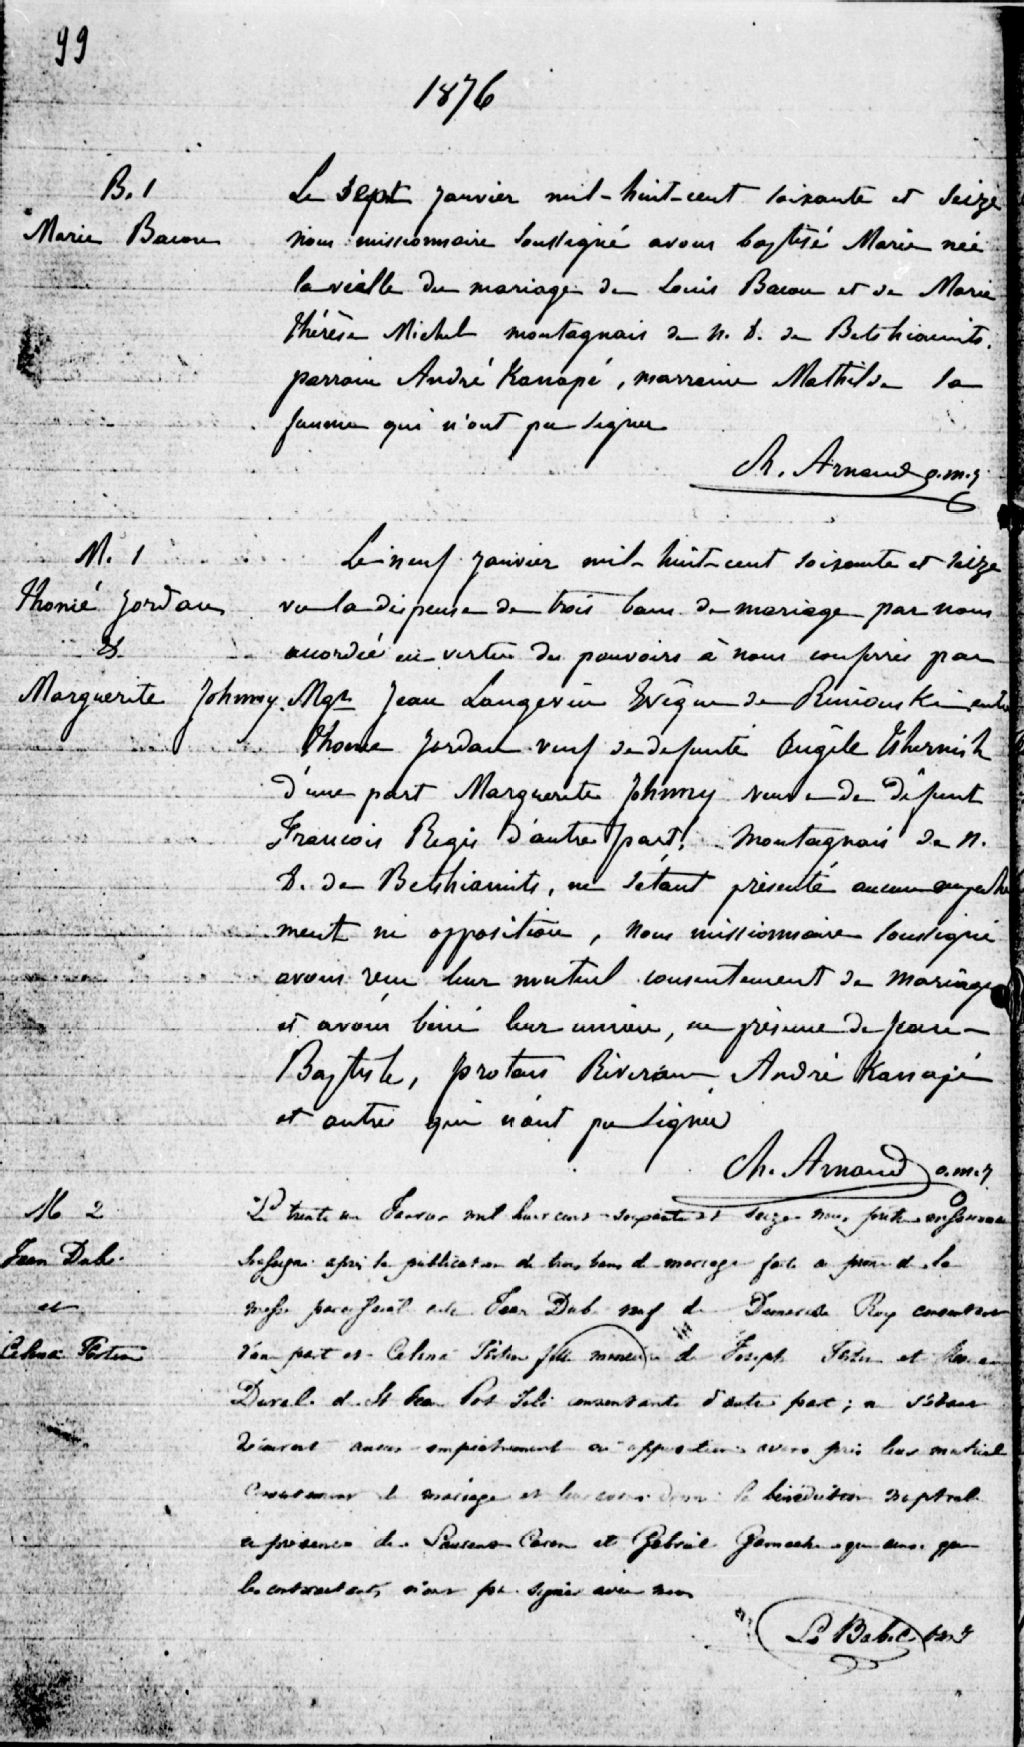 99
1876
B. 1
Marie Bacon
Le sept janvier mil-huit-cent soixante et seize
nous missionnaire soussigné avons baptisé Marie née
la vieille du mariage de Louis Bacon et de Marie
Thérèse Michel montagnais de N. D. de Betshiamits.
parrain André Kanapé, marraine Mathilde sa
femme qui n'ont pu signer
Ch. Arnaud o.m.j
M. 1
Thomé Jordan
&
Marguerite Johnny.
Le neuf janvier mil-huit-cent soixante et seize
vu la dispense de trois bans de mariage par nous
accordée en vertu des pouvoirs à nous conferrés par
Mgr Jean Langevin Evêque de Rimouski entre
Thome Jordan veuf de defunte Angèle
d'une part Marguerite Johnny veuve de défunt
Francois Regis d'autre part. Montagnais de N.
D. de Betshiamits, ne s'étant présenté aucun empeche
ment ni opposition, nous missionnaire soussigné
avons recu leur mutuel consentement de mariage
et avons béni leur union, en présence de Jean
Baptiste, protais Riverain André Kanapé
et autres qui n'ont pu signer
Ch. Arnaud o.m.j
M 2
Jean Dubé
et
Celina Fortin
Le trente un Janvier mil huit cent soixante et seize nous prêtre missionnaire
soussigné après la publication de trois bans de mariage faite au prône de la
messe paroissiale entre Jean Dubé veuf de Roy consentant
d'une part et Celina Fortin fille mineure de Joseph Fortin et
Duval de St Jean Port Joli consentante d'autre part; ne s'étant
découvert aucun empêchement ou opposition avons pris leur mutuel
consentement de mariage et leur avons donné la bénédiction nuptiale
en présence de Laurent Caron et Gabriel Gamache qui ainsi que
les contractants n'ont pu signer avec nous
Ls Babel o.m.j